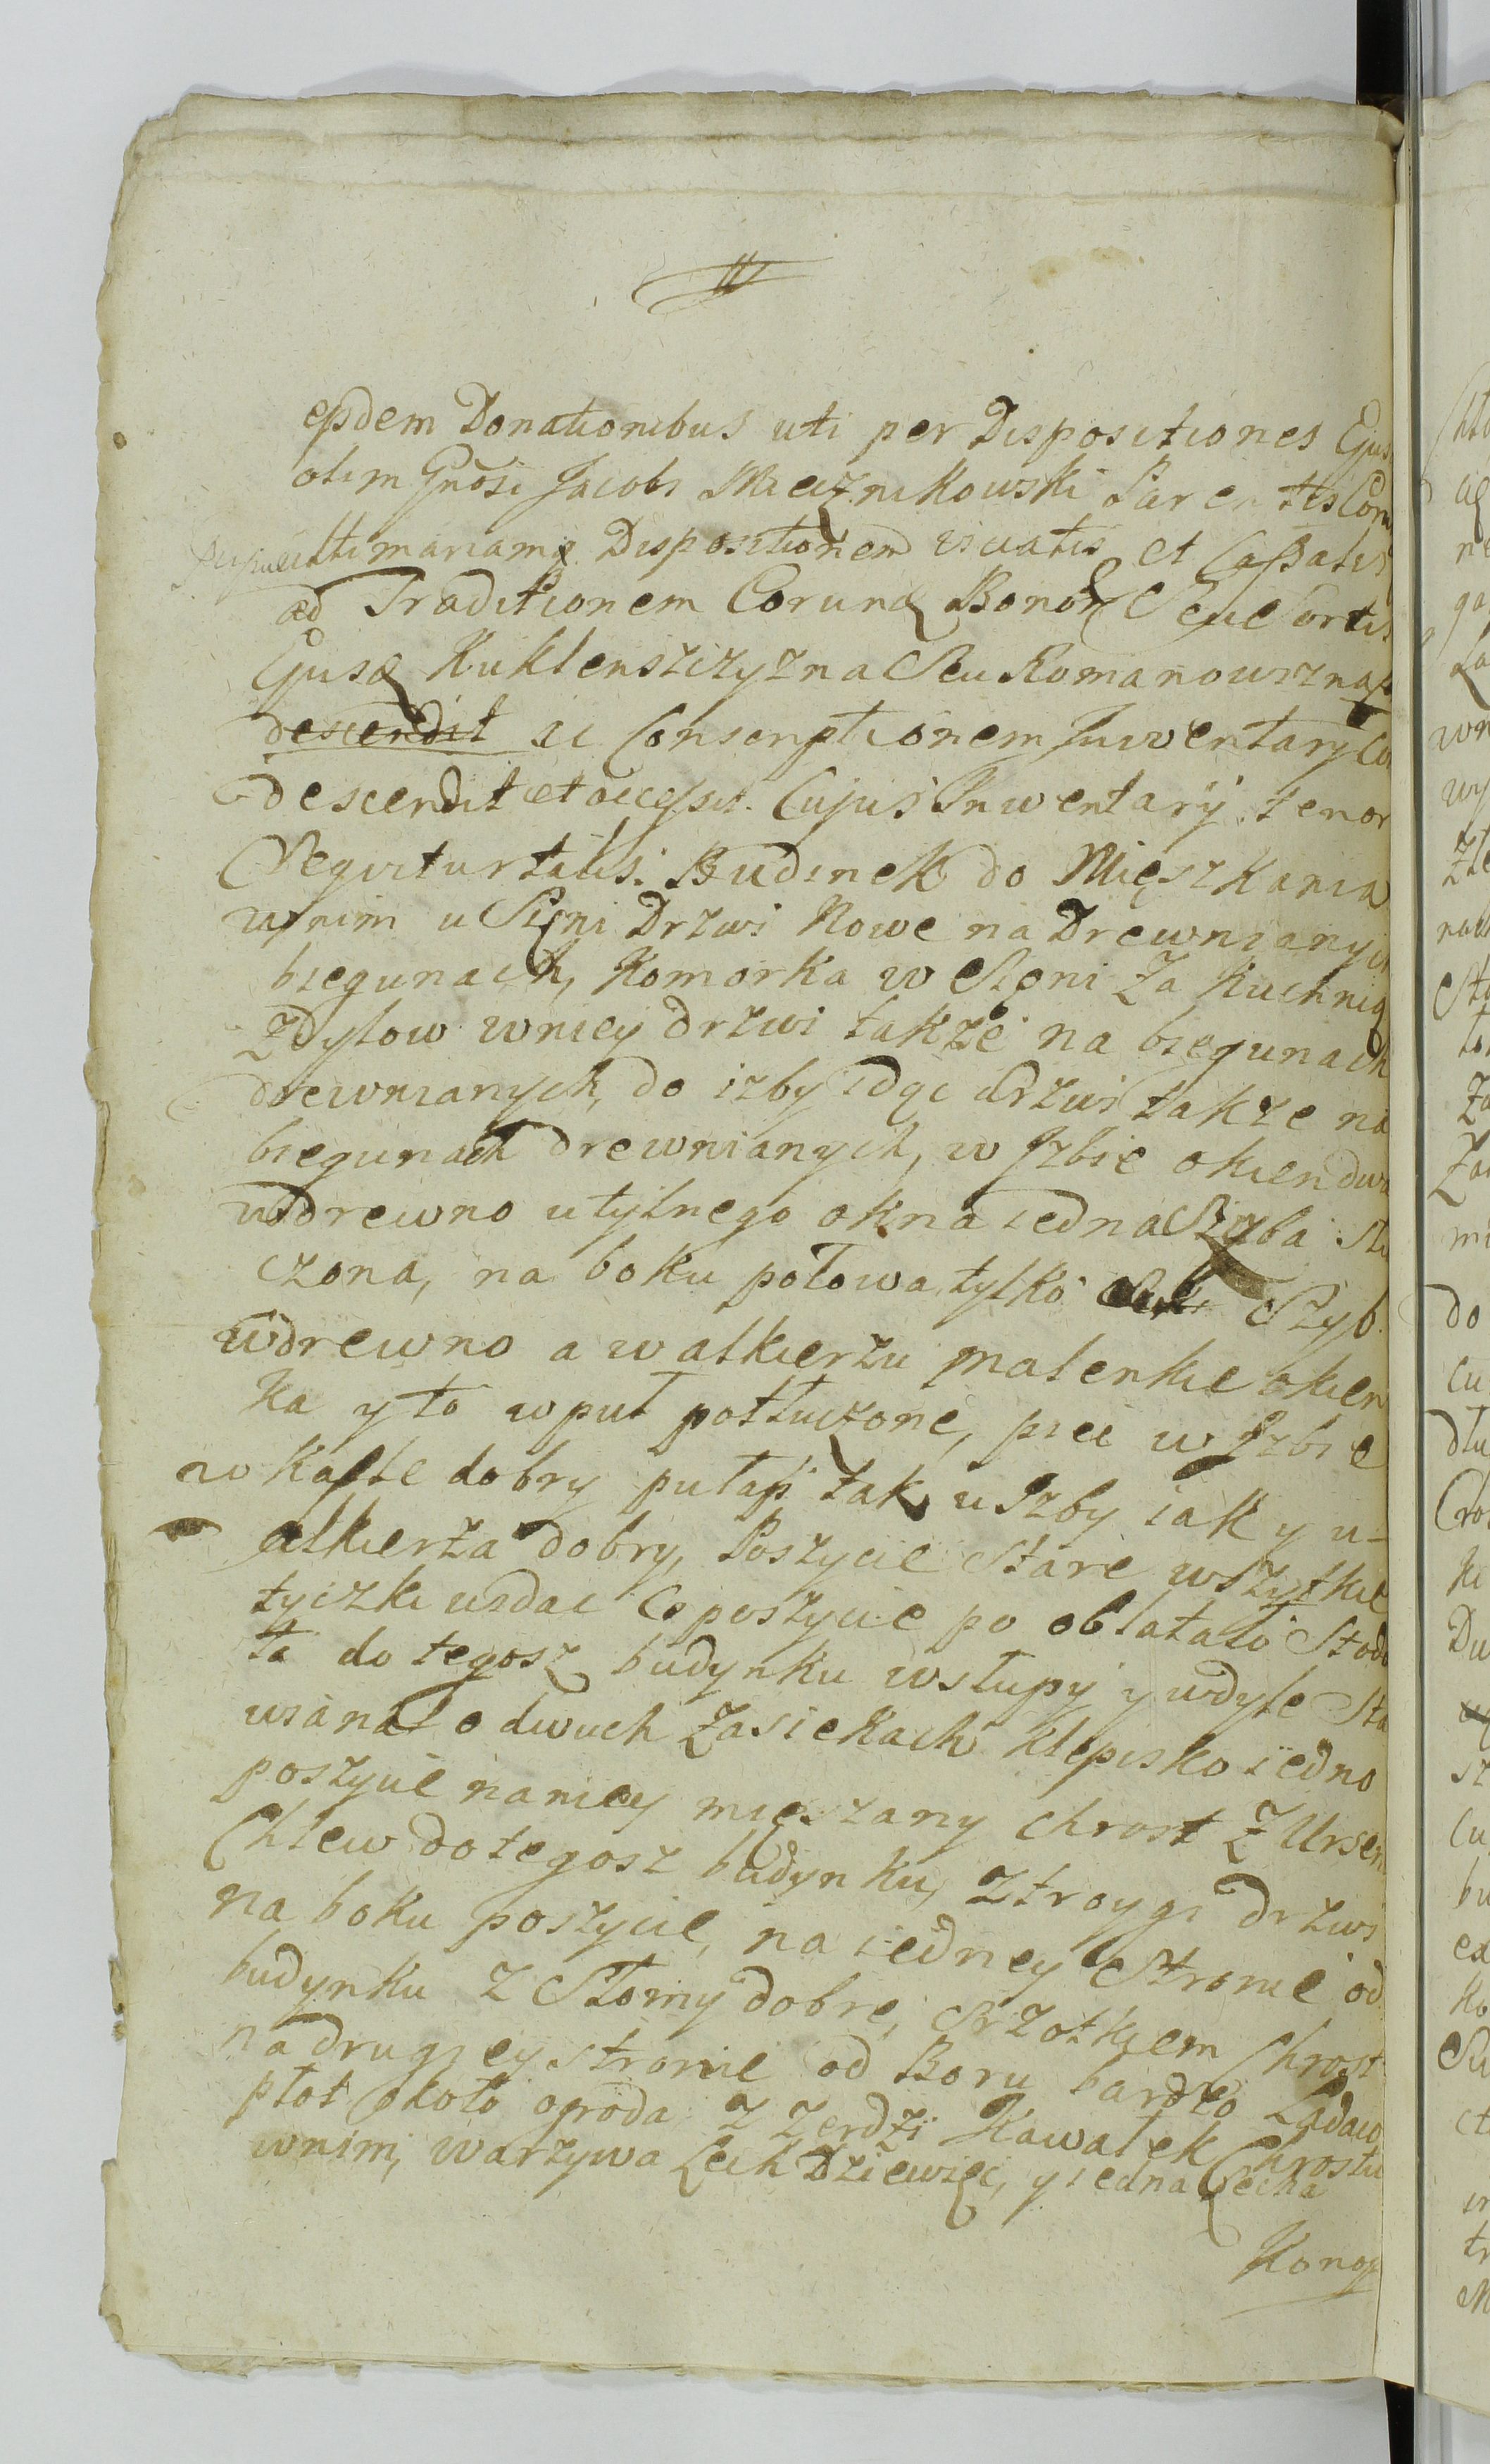 ejsdem Donationibus uti per Dispositiones Ejus
olim Gnosi Jacobi Miecznikowski Parentis Eorum
ultimariamq Dispositionem viciatis et Cassatis
ad Traditionem Eorumq Bonor Seu Sortis
Ejusq Kuklenszizyzna Seu Romanowizna
descendit ac Conscriptionem Inwentarÿ
descendit et accessit. Cujus Inwentarÿ tenor
Seqvitur talis: Budinek do Mięszkania
w nim u Sięni Drzwi Nowe na Drewnianych
biegunach, Komorka w Sięni Za Kuchnią
Z Dylow w niey drzwi także na biegunach
drewnianych, do izby idąc drzwi także na
biegunach drewnianych, w Izbie okien dwa
w drewno u tylnego okna iedna Szyba stłu
czona, na boku połowa tylko Szyb
w drewno a w alkierzu malenkie okien
ka y to w puł potłuczone, piec w Izbie
w Kafle dobry pułap tak u Izby iak y u-
alkierza dobry, Poszycie Stare wszytkie
tyczki widac Co poszycie po oblatało Stodo
ła do tegosz budynku w słupy y w dyle Sta
wiana o dwuch Zasiekach klepisko iedno
poszycie na niey mięszany chrost Z Ursem
Chlew do tegosz budynku, Z troygi drzwi
na boku poszycie, na iedney Stronie od
budynku Z Słomy dobre, Srzotkiem Chrost
na drugiey stronie od Boru bardzo Ladaco
płot około ogroda Z Zerdzi Kawałek Chrostu
w nim, warzywa Lech Dziewięc, y iedna Lecha
Konop